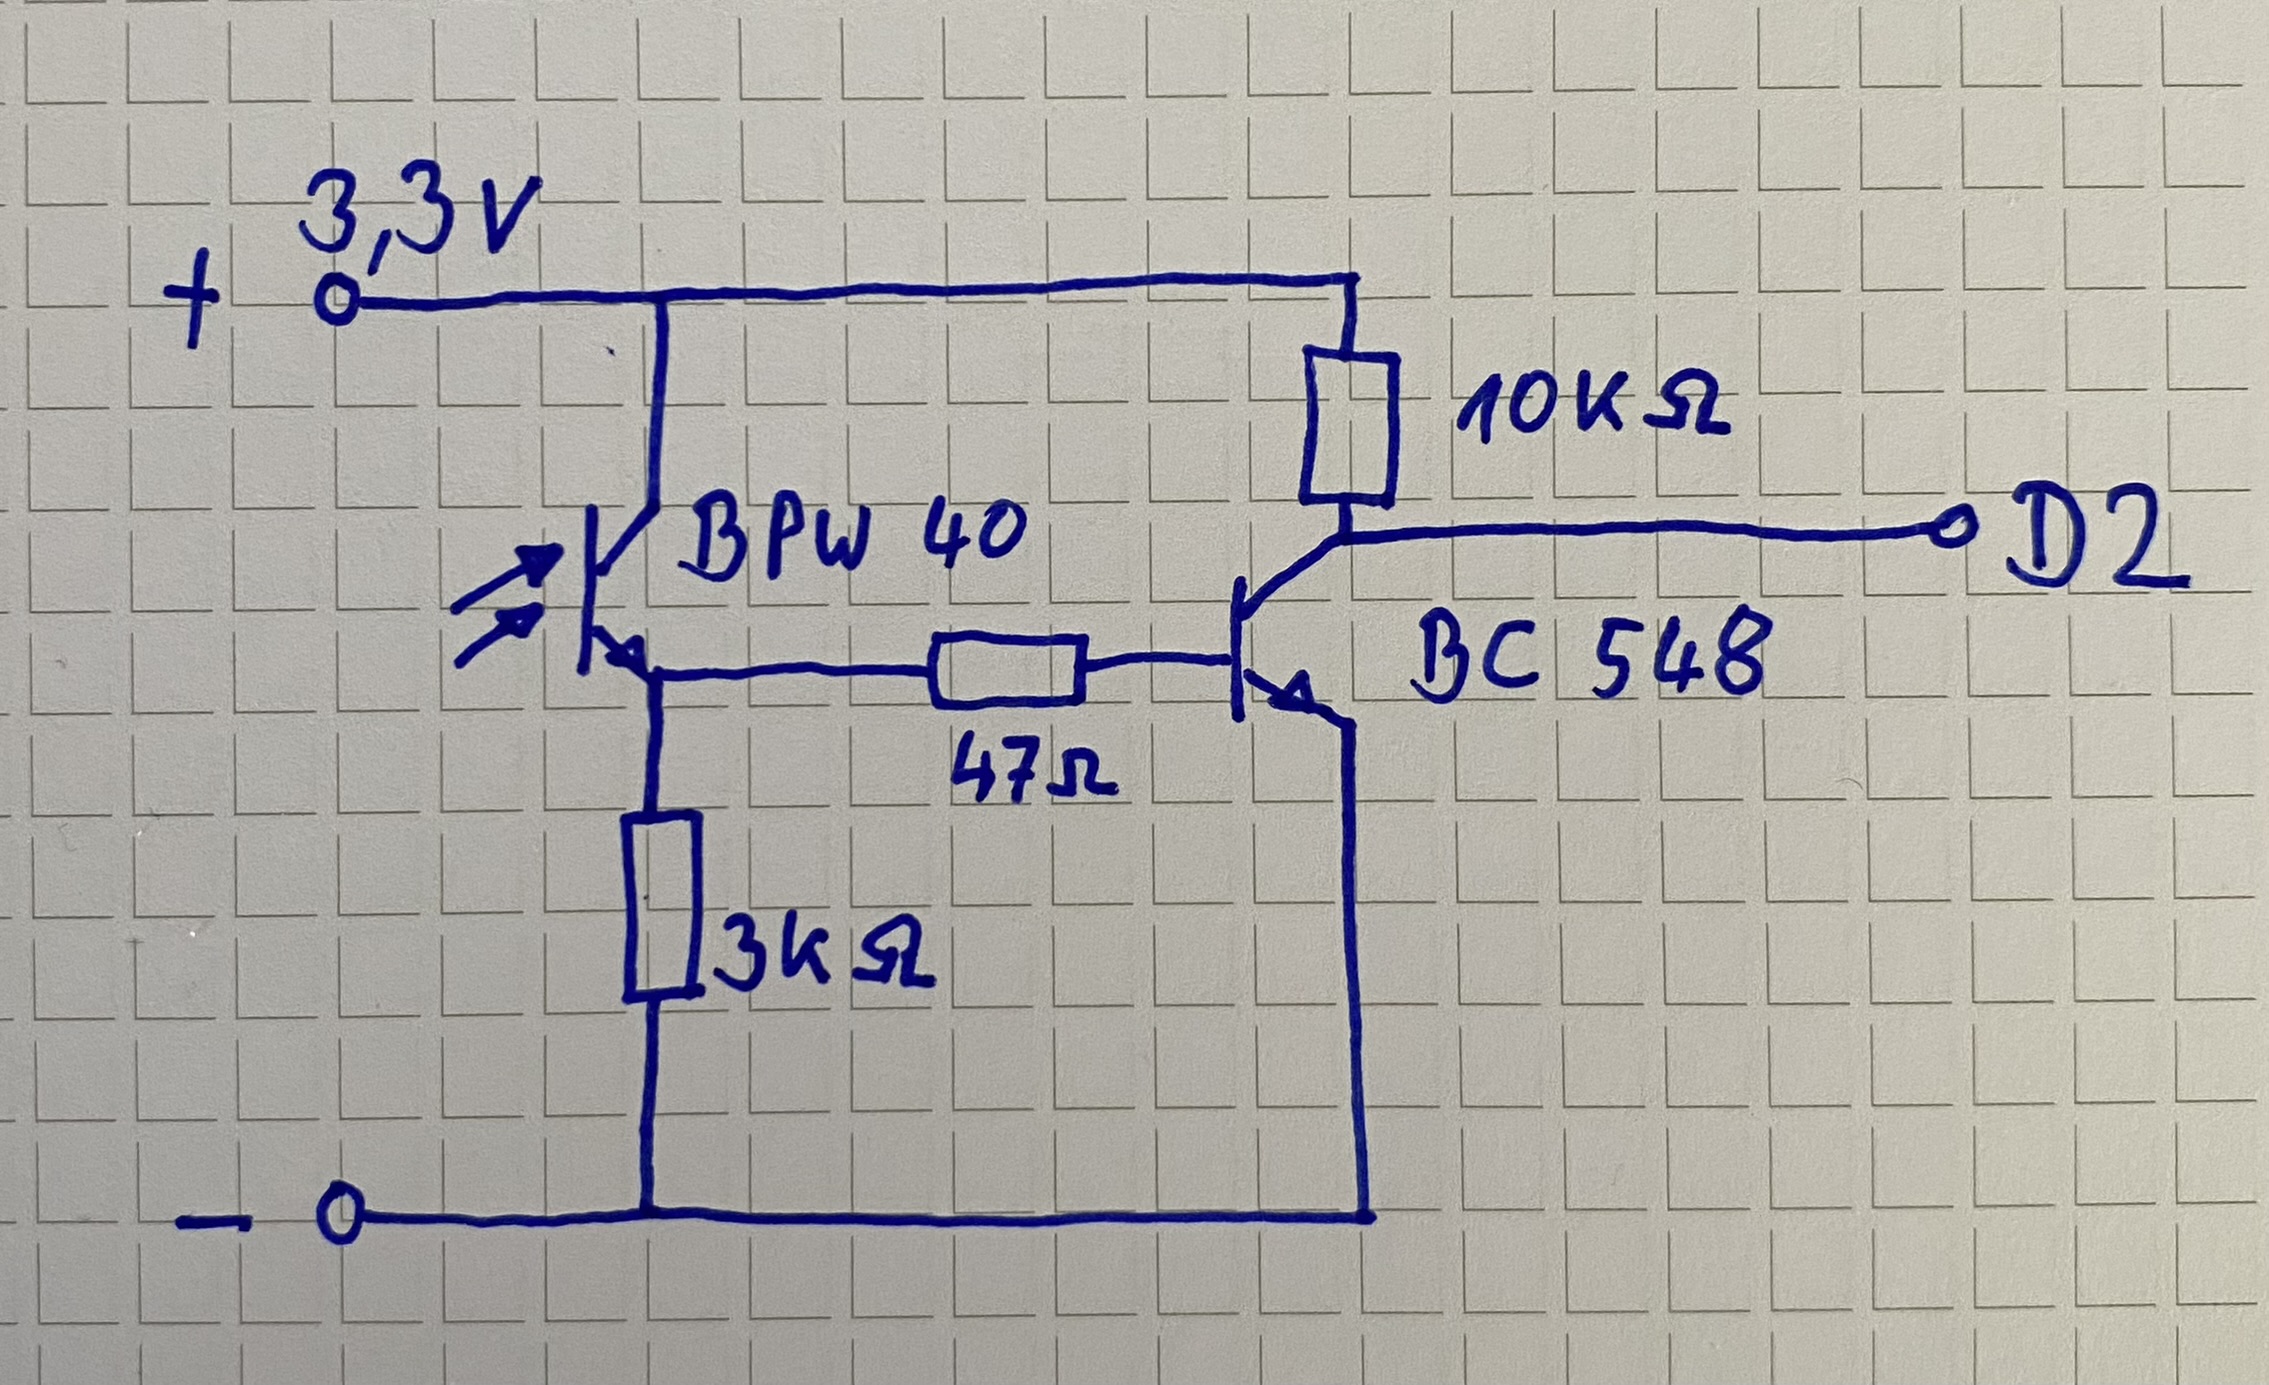 3,3V
+
10KΩ
BPW 40
D2
BC 548
47Ω
3KΩ
−